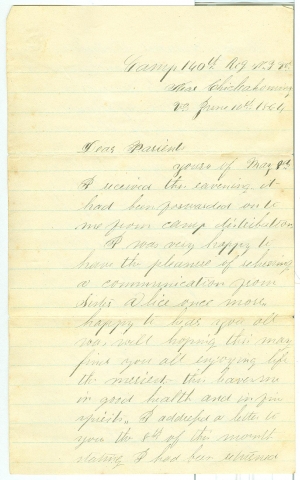 Camp 140th Reg N.Y. Vs
Near Chickahominy
Va June 10th 1864
Dear Parients
yours of May 8th
I received this evening it
had been forwarded on to
me from camp distribution
I was very happy to
have the pleasure of
a communication from
Alice once more
happy to hear you all
was well hoping this may
find you all enjoying life
the this leaves me
in good health and in fine
spirits. I addressed a letter to
you the 8th of this month
stating I had been